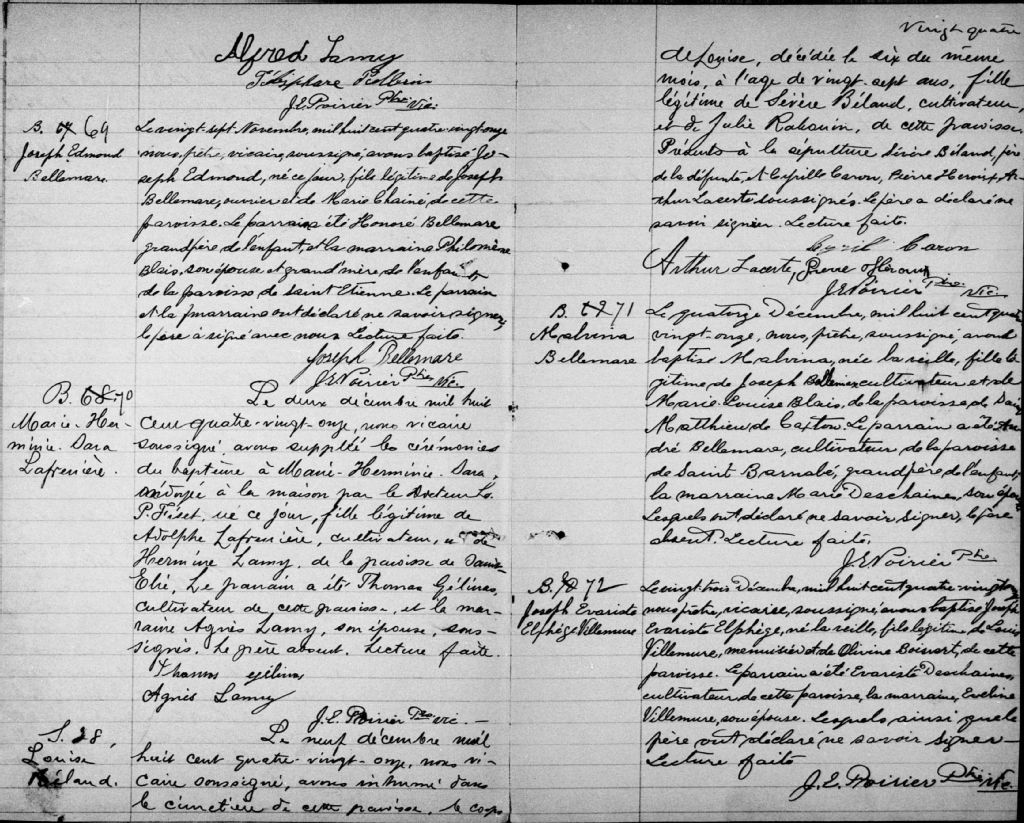 Alfred Lamy
Télesphore Pellerin
J.E. Poirier Ptre Vic.
B. 69
Joseph Edmond
Bellemare.
Le vingt-sept Novembre, mil huit cent quatre-vingt-onze
nous, prêtre, vicaire, soussigné, avons baptisé Jo-
seph Edmond, né ce jour, fils légitime de Joseph
Bellemare, ouvrier et de Marie Chainé de cette
paroisse. Le parrain a été Honoré Bellemare
grandpère de l'enfant, et la marraine Philomène
Blais, son épouse et grand'mère, de l'enfant
de la paroisse de saint Etienne. Le parrain
et la marraine ont déclaré ne savoir signer,
le père a signé avec nous Lecture faite.
Joseph Bellemare
J.E. Poirier Ptre Vic.
B. 68-70
Marie-Her-
minie. Sara
Lafrenière.
Le deux décembre mil huit
cent quatre-vingt-onze, nous vicaire
soussigné, avons suppléé les cérémonies
du baptême à Marie-Herminie. Sara,
ondoyée à la maison par le docteur Ls
P. Fiset, né ce jour, fille légitime de
Adolphe Lafrenière, cultivateur, et de
Hermine Lamy, de la paroisse de Saint
Elie, Le parrain a été Thomas Gélinas,
cultivateur de cette paroisse, et la mar-
raine Agnès Lamy, son épouse, sous-
signés. Le père absent. Lecture faite.
Thomas gélinas
Agnès Lamy
J.E. Poirier Ptre vic.
S. 28,
Louise
Béland.
Le neuf décembre mil
huit cent quatre-vingt-onze, nous vi-
caire soussigné, avons inhumé dans
le cimetière de cette paroisse, le corps
Vingt quatre
de Louise, décédée le six du même
mois, à l'age de vingt sept ans, fille
légitime de Sévère Béland, cultivateur,
et de Julie Rabouin, de cette paroisse.
Présents à la sépulture Sévère Béland, père
de la défunte, et Cyrille Caron, Pierre Heroux, Ar-
thur Lacerte soussignés. Le père a déclaré ne
savoir signer. Lecture faite.
Cyril Caron
Arthur Lacerte, Pierre Heroux
J.E. Poirier Ptre. Vic.
B. 71
Malvina
Bellemare
Le quatorze Décembre, mil huit cent quatre
vingt-onze, nous, prêtre, soussigné, avons
baptisé Malvina, née la veille, fille lé-
gitime de Joseph Bellemare, cultivateur et de
Marie-Louise Blais, de la paroisse de Saint
Matthieu de Caxton. Le parrain a été An-
dré Bellemare, cultivateur, de la paroisse
de Saint Barnabé, grandpère de l'enfant,
la marraine Marie Deschaines, son épouse
Lesquels ont déclaré ne savoir signer, le père
absent. Lecture faite.
J.E. Poirier Ptre
B. 72
Joseph Evariste
Elphège Villemure
Le vingt trois Décembre, mil huit cent quatre-vingt-onze
nous prêtre, vicaire, soussigné, avons baptisé Joseph
Evariste Elphège, né la veille, fils légitime de Louis
Villemure, menuisier et de Olivine Boisvert, de cette
paroisse. Le parrain a été Evariste Deschaines,
cultivateur de cette paroisse, la marraine, Eveline
Villemure, son épouse. Lesquels ainsi que le
père ont déclaré ne savoir signer.
Lecture faite
J.E. Poirier Ptre Vic.